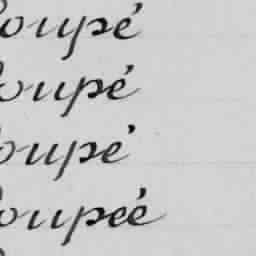 oupé
oupé
oupé
oupée